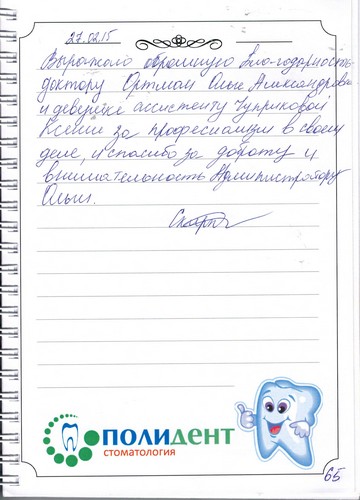 27.02.15
Выражаю огромную благодарность
доктору Ортман Ольге Александровне
и девушке ассистенту Чуприковой
Ксении за професиализм в своем
деле, и спасибо за доброту и
внимательность Администратору
Ольги.
ПОЛИДЕНТ
СТОМАТОЛОГИЯ
65